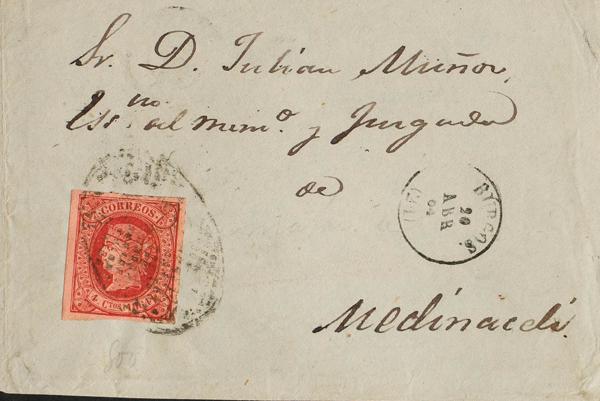 Sr. D. Julian Muñoz,
Essno. del mimo. y Juzgado
de
Medinaceli.
CORREOS
4 CTOS
BURGOS.
20
ABR
64
(15)
800